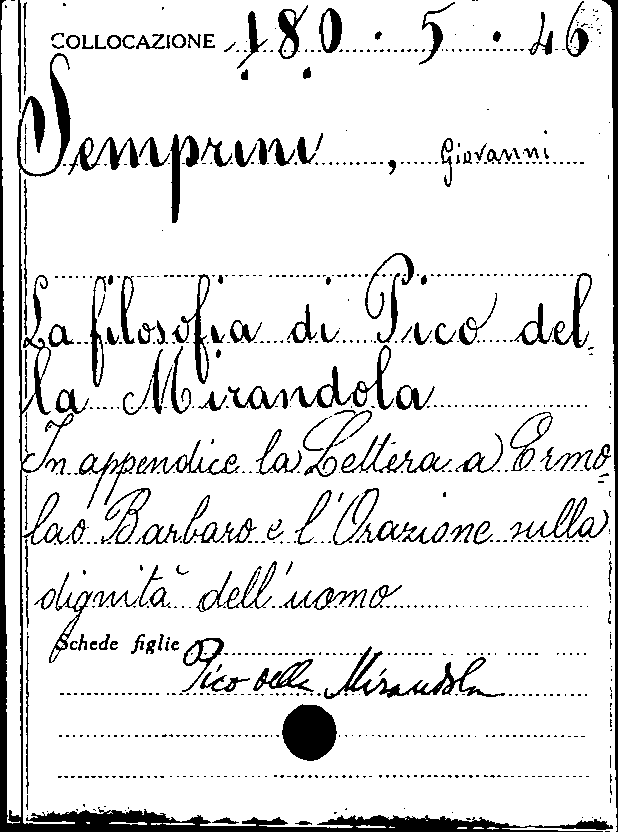 COLLOCAZIONE 180 · 5 · 46
Semprini, Giovanni
La filosofia di Pico del=
la Mirandola
In appendice la Lettera a Ermo=
lao Barbaro e l'Orazione sulla
dignità dell'uomo
Schede figlie
Pico della Mirandola